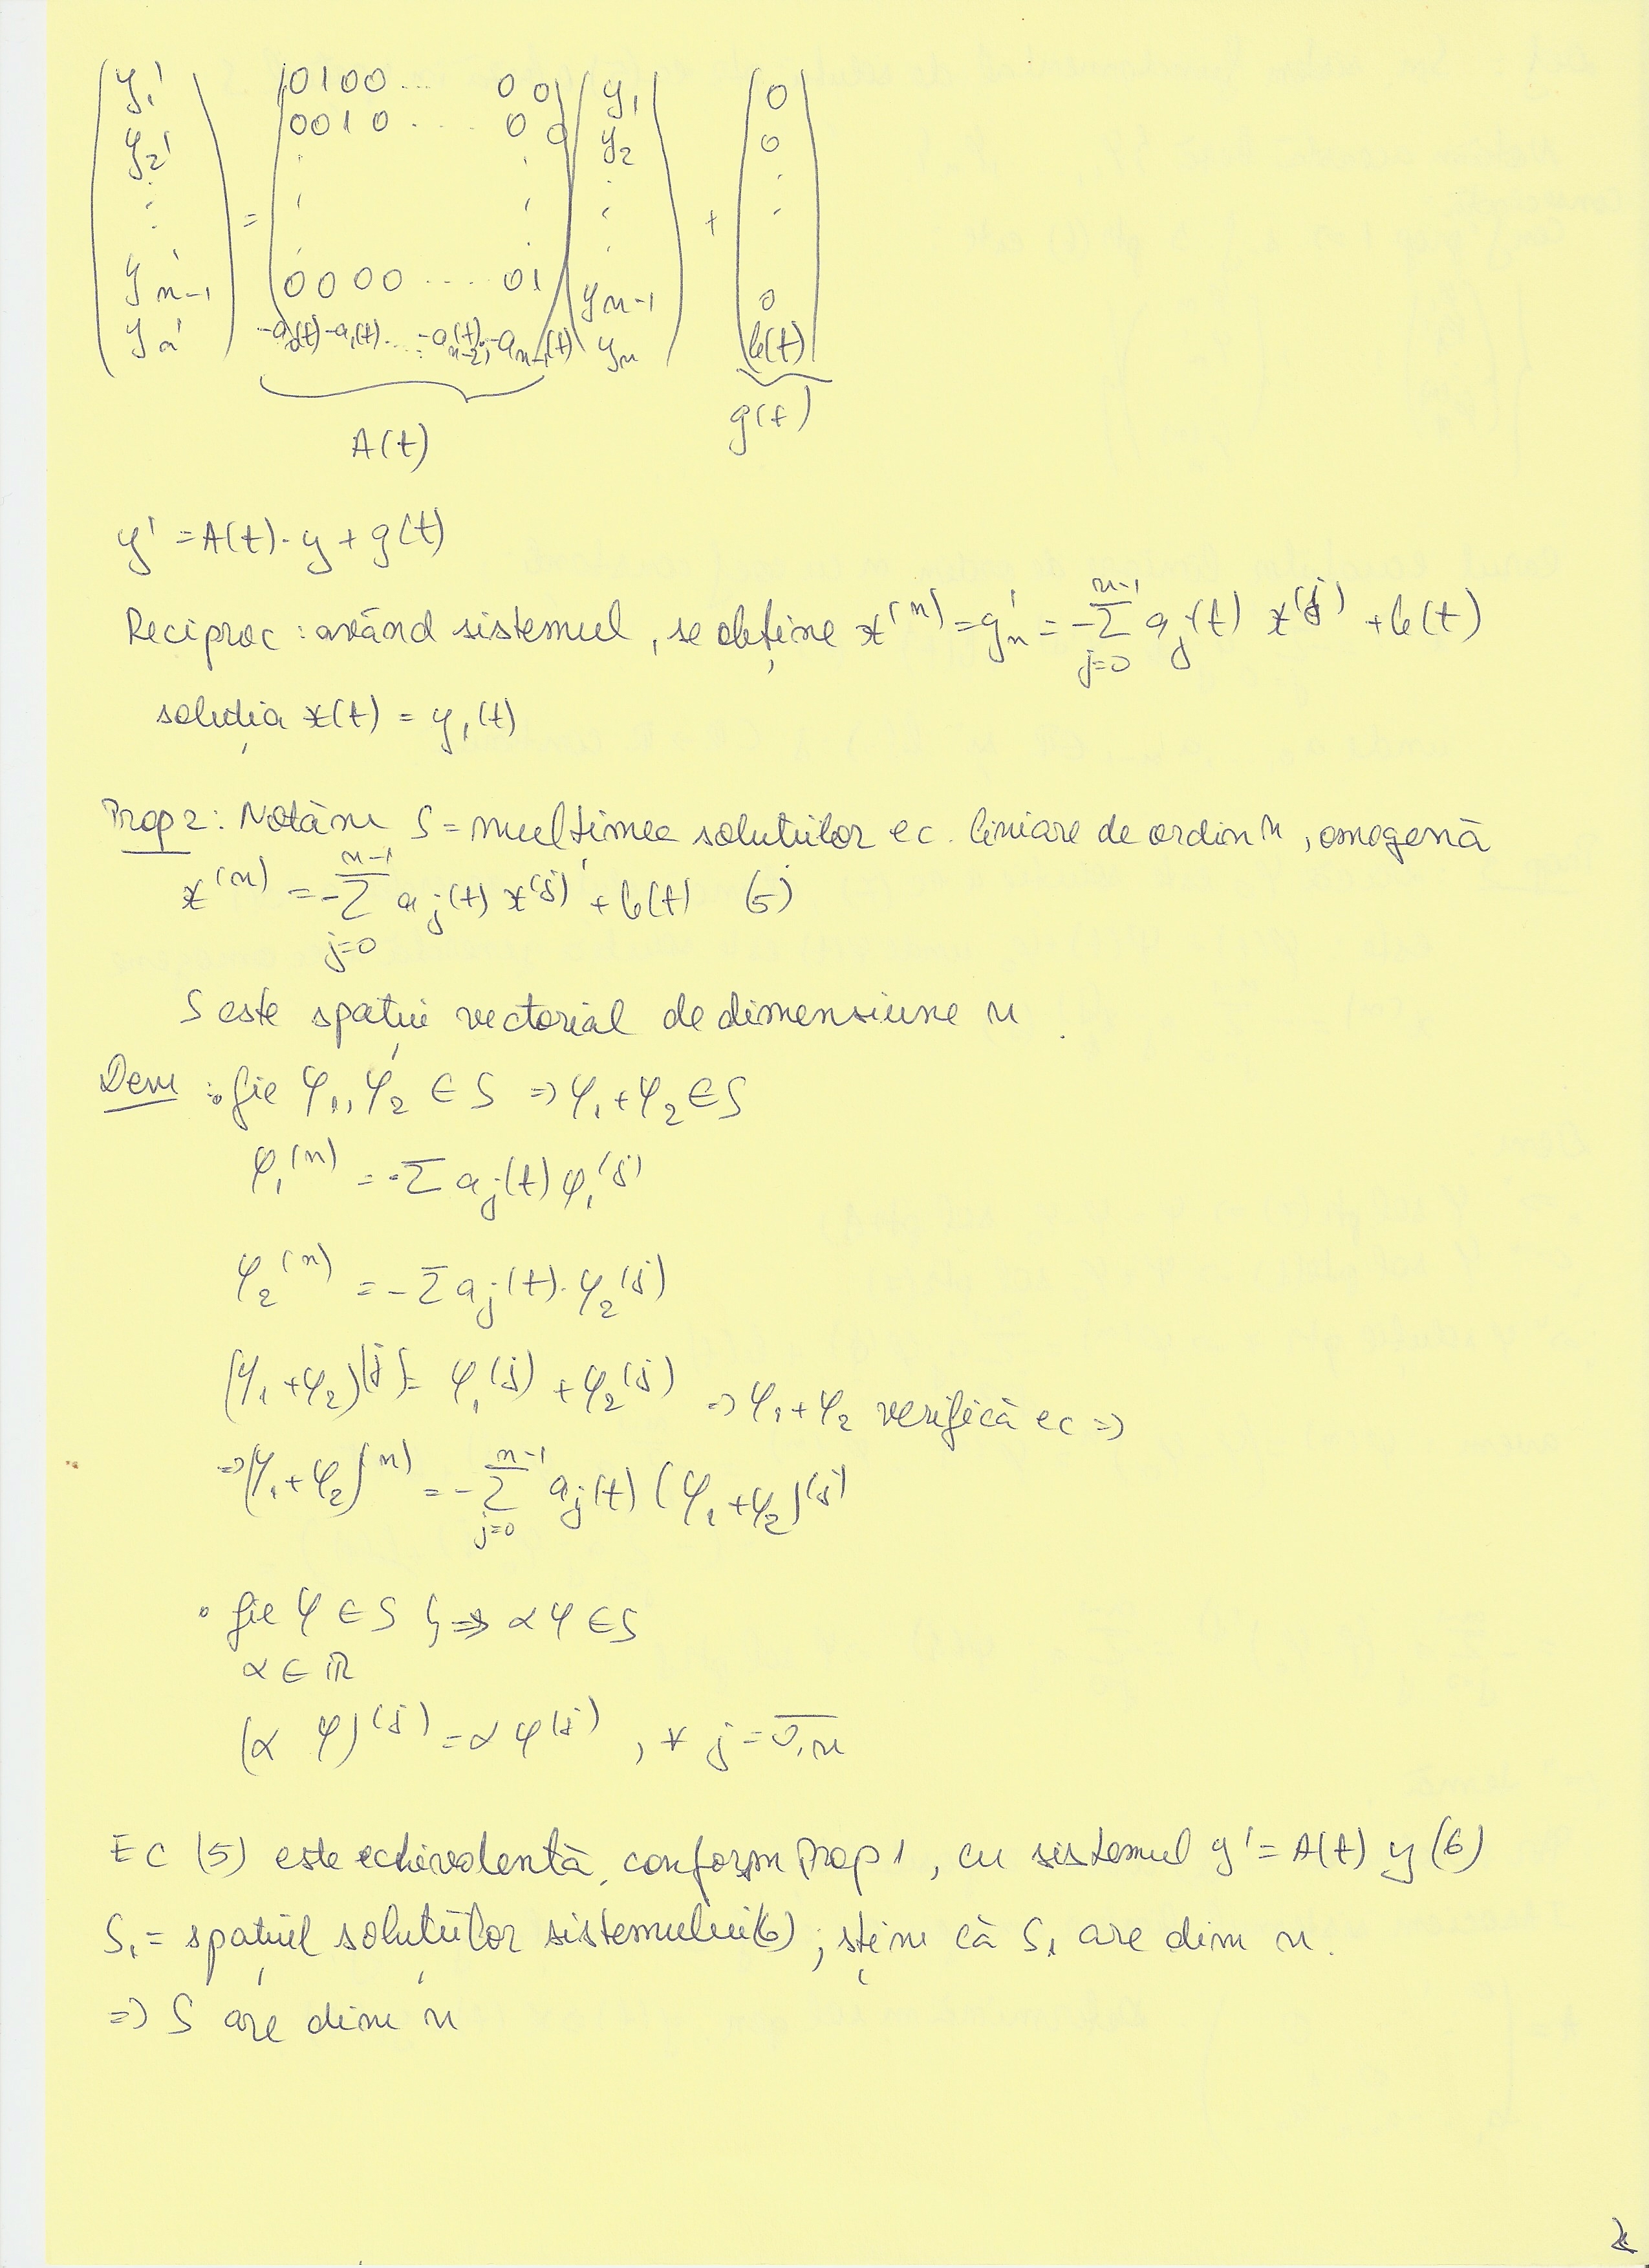 y₁' 0 1 0 0 ... 0 0 y₁ 0
y₂' 0 0 1 0 .... 0 0 y₂ 0
⋮ = ⋮ ⋮ ⋮ + ⋮
y'ₙ₋₁ 0 0 0 0 .... 0 1 yₙ₋₁ 0
yₙ' -a₀(t) -a₁(t) .... -aₙ₋₂(t) -aₙ₋₁(t) yₙ b(t)
A(t) g(t)
y' = A(t)·y + g(t)
Reciproc: având sistemul, se obține x⁽ⁿ⁾ = y'ₙ = -∑_{j=0}^{n-1} aⱼ(t) x⁽ʲ⁾ + b(t)
soluția x(t) = y₁(t)
Prop 2: Notăm S = mulțimea soluțiilor ec. liniare de ordin n, omogenă
x⁽ⁿ⁾ = -∑_{j=0}^{n-1} aⱼ(t) x⁽ʲ⁾ + b(t) (5)
S este spațiu vectorial de dimensiune n.
Dem: • fie φ₁, φ₂ ∈ S => φ₁+φ₂ ∈ S
φ₁⁽ⁿ⁾ = -∑ aⱼ(t) φ₁⁽ʲ⁾
φ₂⁽ⁿ⁾ = -∑ aⱼ(t)·φ₂⁽ʲ⁾
(φ₁+φ₂)⁽ʲ⁾ = φ₁⁽ʲ⁾ + φ₂⁽ʲ⁾ => φ₁+φ₂ verifică ec =>
=> (φ₁+φ₂)⁽ⁿ⁾ = -∑_{j=0}^{n-1} aⱼ(t) (φ₁+φ₂)⁽ʲ⁾
• fie φ ∈ S } => αφ ∈ S
α ∈ ℝ
(α φ)⁽ʲ⁾ = α φ⁽ʲ⁾, ∀ j = \overline{0,n}
EC (5) este echivalentă, conform Prop 1, cu sistemul y' = A(t) y (6)
S₁ = spațiul soluțiilor sistemului (6); știm că S₁ are dim n.
=> S are dim n